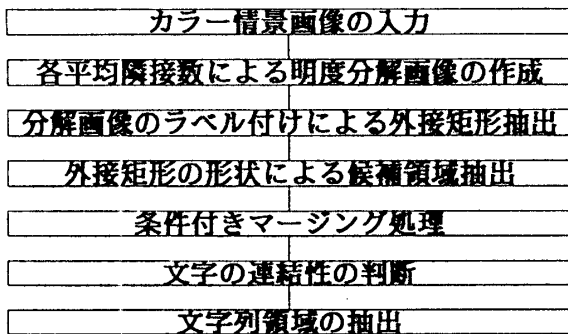 カラー情景画像の入力
各平均隣接数による明度分解画像の作成
分解画像のラベル付けによる外接矩形抽出
外接矩形の形状による候補領域抽出
条件付きマージング処理
文字の連結性の判断
文字列領域の抽出